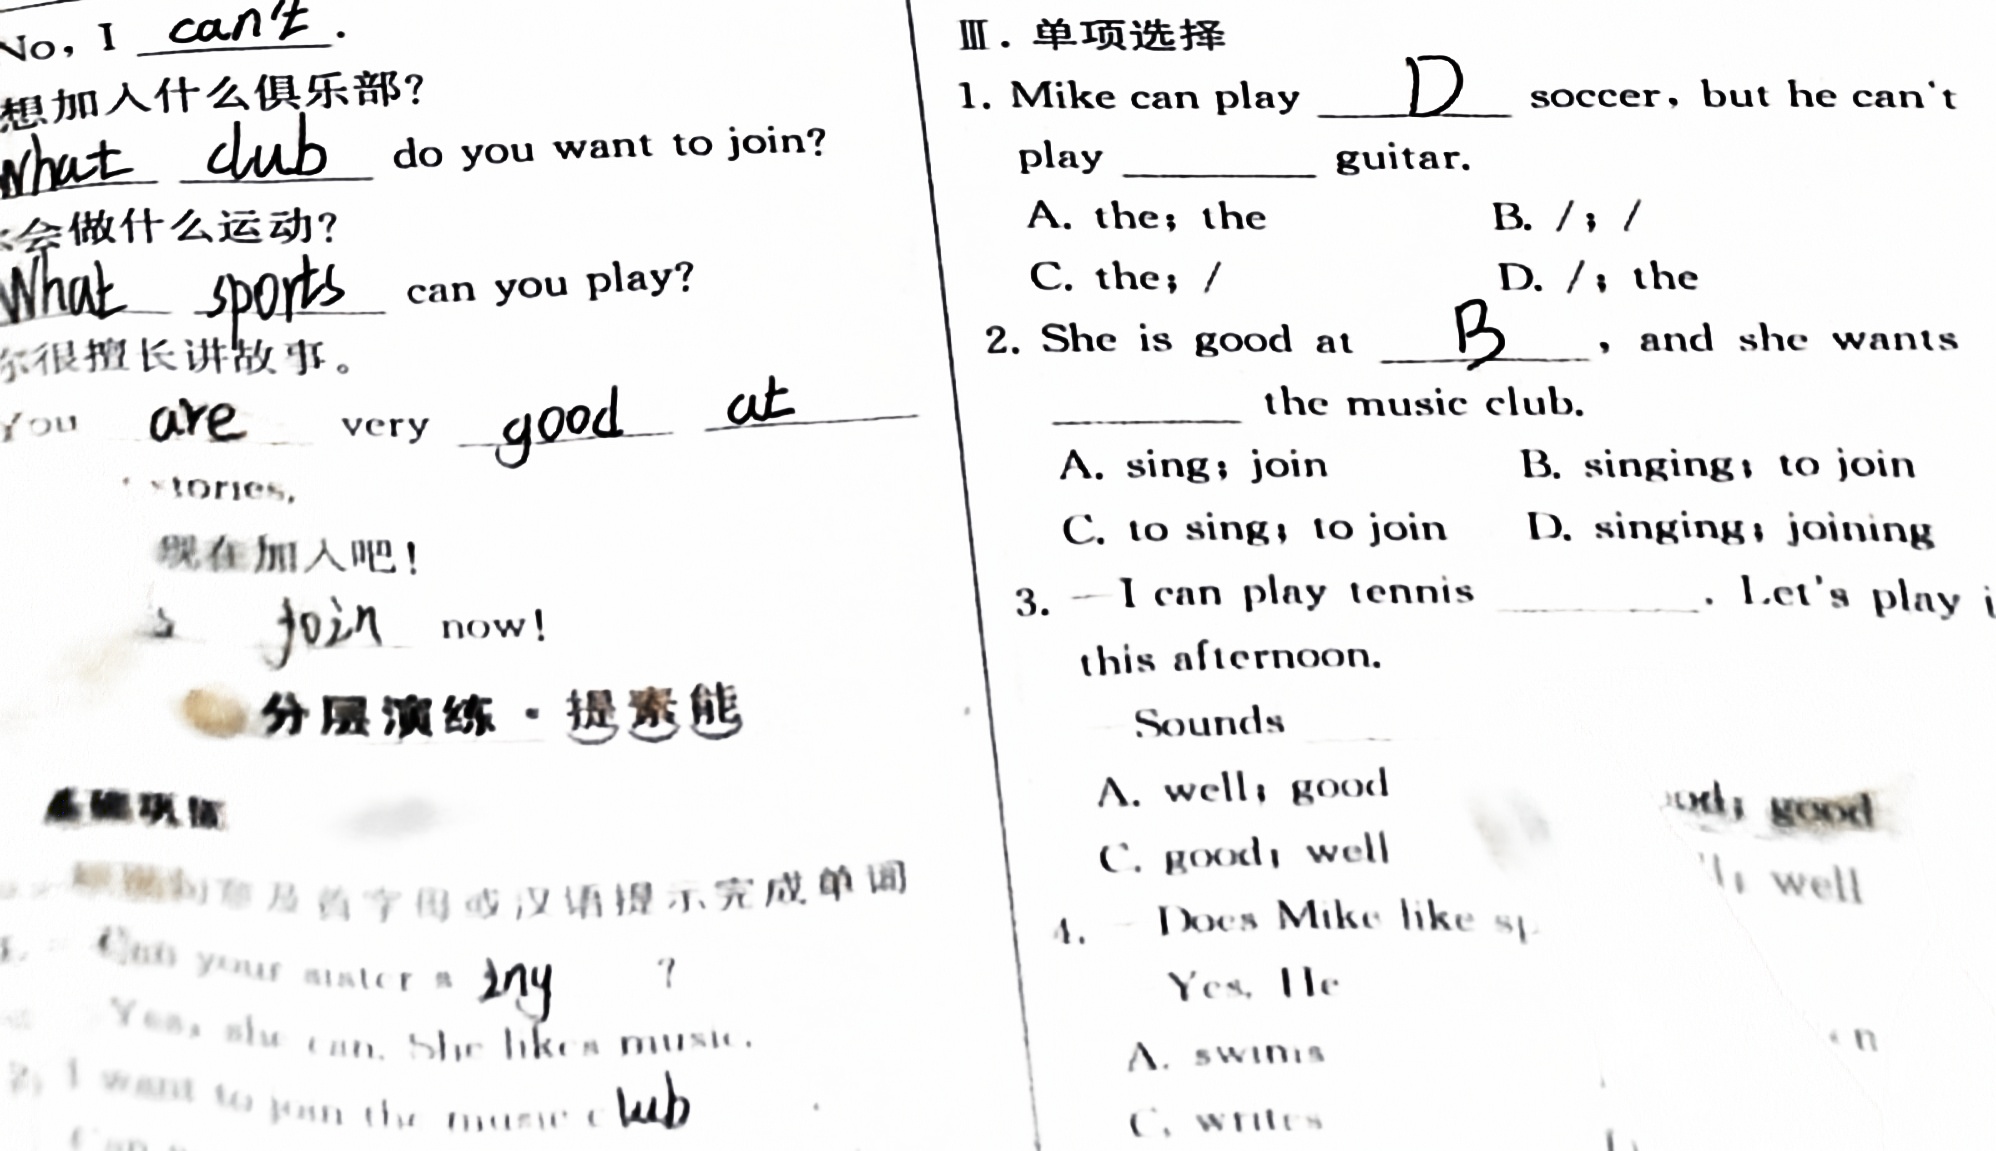 No, I can't.
想加入什么俱乐部?
What club do you want to join?
会做什么运动?
What sports can you play?
你很擅长讲故事。
You are very good at
stories.
现在加入吧!
join now!
分层演练·提素能
基础巩固
句意及首字母或汉语提示完成单词
Can your sister s ing ?
Yes, she can. She likes music.
2. I want to join the music c lub
Ⅲ. 单项选择
1. Mike can play D soccer, but he can't
play ________ guitar.
A. the; the B. /; /
C. the; / D. /; the
2. She is good at B , and she wants
________ the music club.
A. sing; join B. singing; to join
C. to sing; to join D. singing; joining
3. —I can play tennis ________. Let's play i
this afternoon.
Sounds
A. well; good good
C. good; well well
4. — Does Mike like
Yes. He
A. swims
C. writes